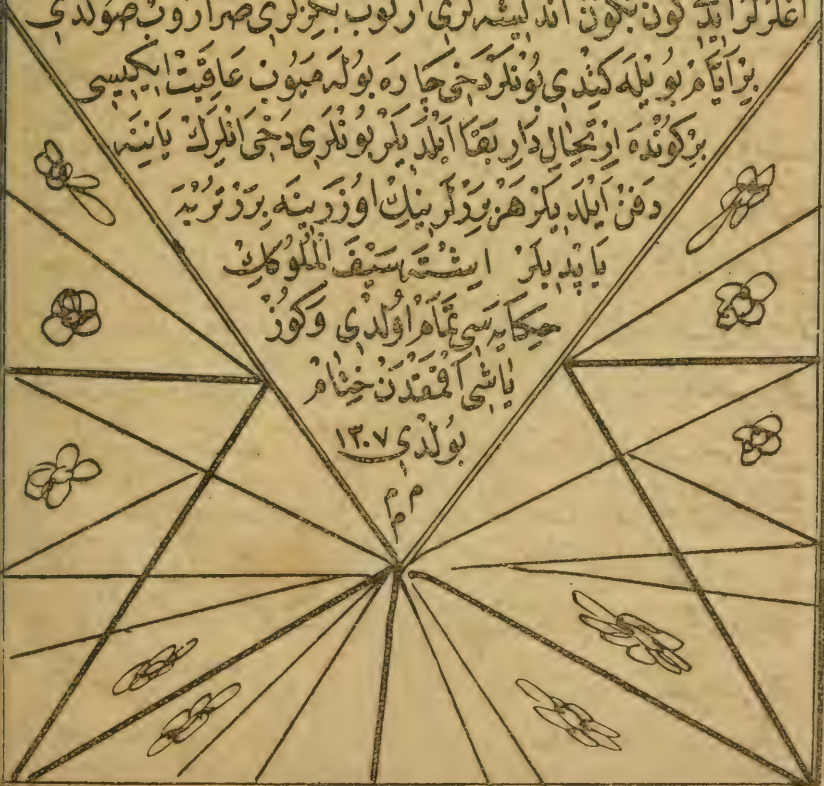 اغلرلر ایدی کون بکون اندیشه لری ارتوب بکزلری صراروب صولدی
بر ایام بویله کتدی بونلر دخی چاره بوله میوب عاقبت ایکیسی
بر کونده ارتحال دار بقا ایلدیلر بونلری دخی انلرك یاننه
دفن ایلدیلر هر بردلرینك اوزرینه برر تربه
یاپدیلر ایشته سیف الملوكك
حكایه سی تمام اولدی و کوز
یاشی اقمقدن ختام
بولدی ١٣٠٧
م م م